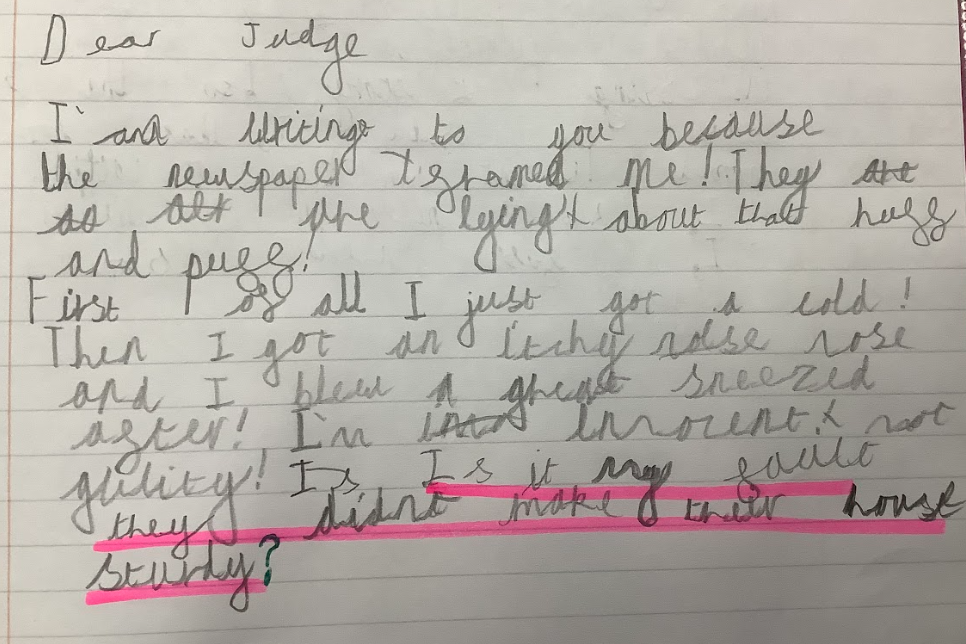 Dear Judge
I'am writing to you because
the newspaper framed me! They
are lying about that huff
and puff!
First of all I just got a cold!
Then I got an itchy noise nose
and I blew a great sneezed
after! I'm innocent not
guility! Is Is it my fault
they didn't make their house
sturdy?